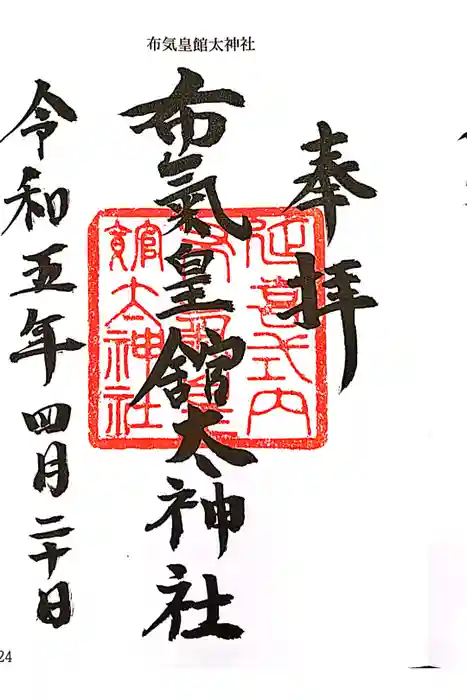 布気皇館太神社
奉拝
延喜式内
布氣皇館太神社
館太神社
令和五年四月二十日
24